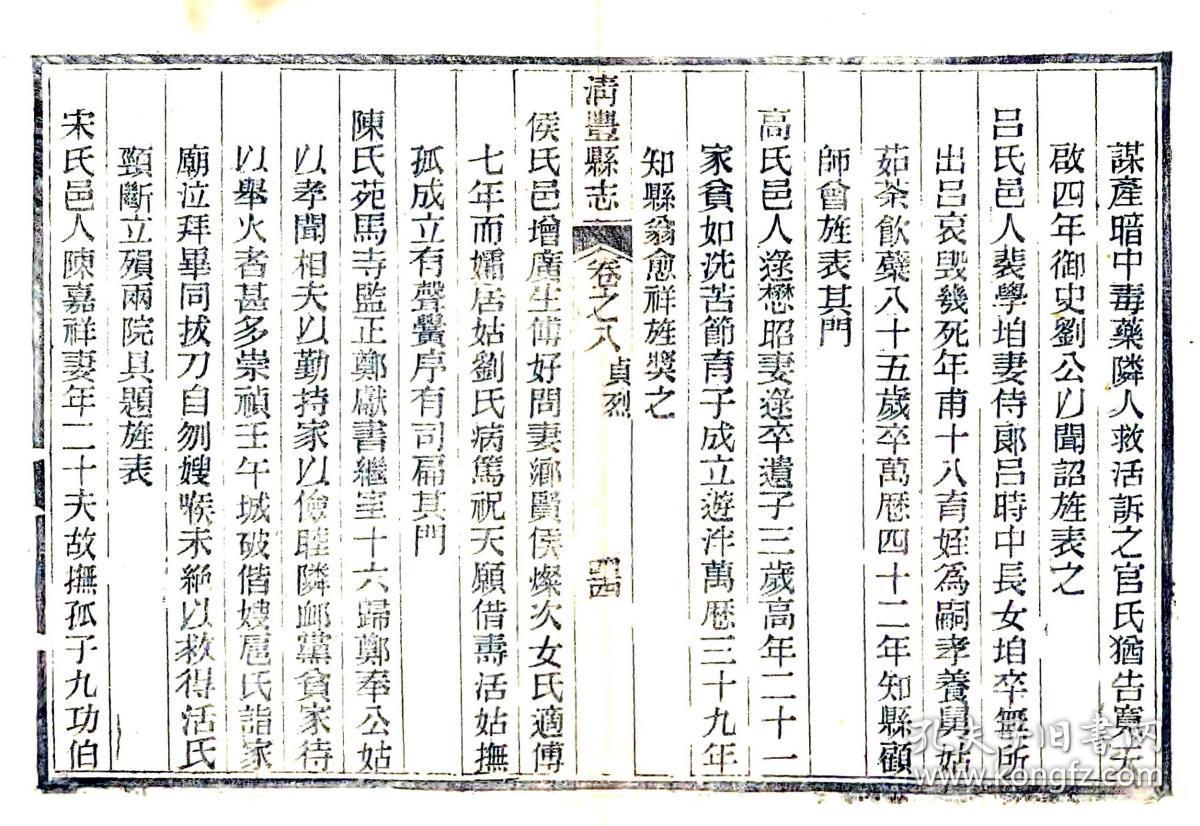 謀產暗中毒藥隣人救活訴之官氏猶告寬天
啟四年御史劉公以聞詔旌表之
呂氏邑人裴學垍妻侍郎呂時中長女垍卒無所
出呂哀毀幾死年甫十八育姪為嗣孝養舅姑
茹茶飲蘗八十五歲卒萬曆四十二年知縣顧
師會旌表其門
高氏邑人逯懋昭妻逯卒遺子三歲高年二十一
家貧如洗苦節育子成立遊泮萬曆三十九年
知縣翁愈祥旌獎之
清豐縣志
卷之八 貞烈
四四
侯氏邑增廣生傅好問妻鄉賢侯燦次女氏適傅
七年而孀居姑劉氏病篤祝天願借壽活姑撫
孤成立有聲黌序有司扁其門
陳氏苑馬寺監正鄭獻書繼室十六歸鄭奉公姑
以孝聞相夫以勤持家以儉睦隣卹黨貧家待
以舉火者甚多崇禎壬午城破偕嫂扈氏詣家
廟泣拜畢同拔刀自刎嫂喉未絶以救得活氏
頸斷立殞兩院具題旌表
宋氏邑人陳嘉祥妻年二十夫故撫孤子九功伯
孔夫子旧书网
www.kongfz.com